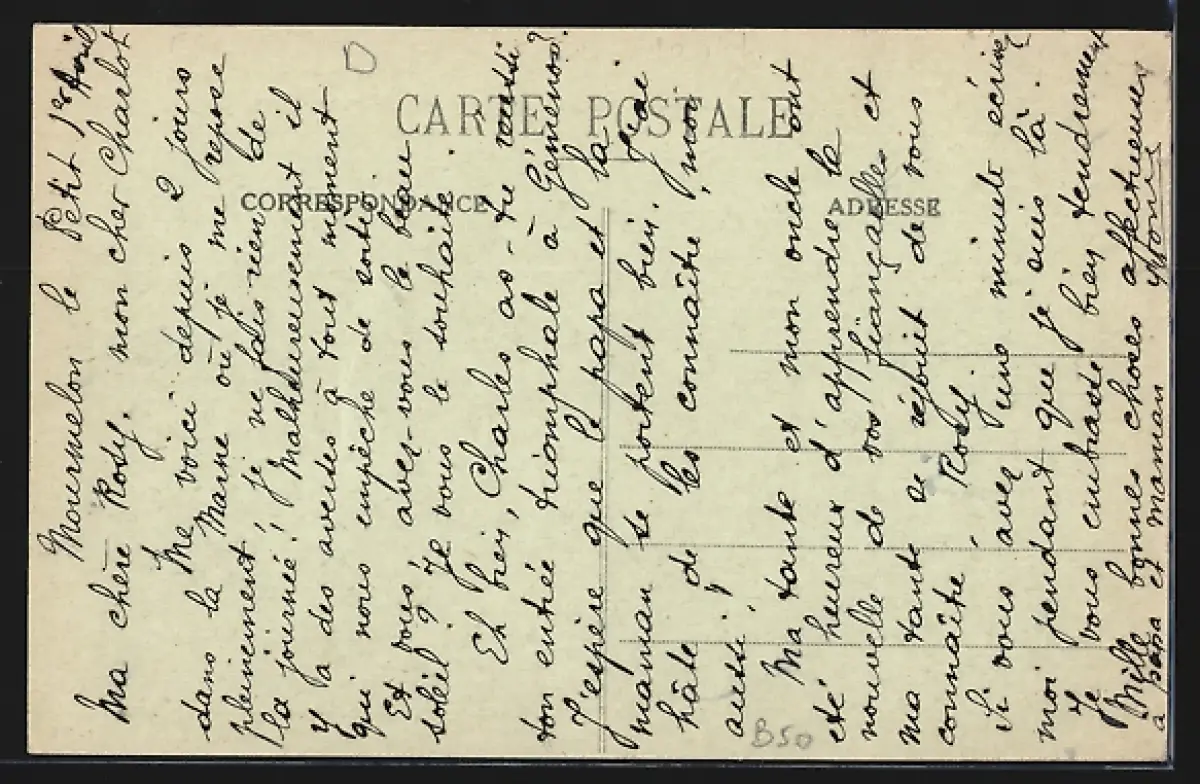 CARTE POSTALE
CORRESPONDANCE
ADRESSE
D
Mourmelon le Petit 1er Avril
Ma chère Rody. mon cher Charlot
Me voici depuis 2 jours
dans la Marne où je me repose
pleinement ; je ne fais rien de
la journée ! Malheureusement il
y a des averses à tout moment
qui nous empêche de sortir.
Et vous, avez-vous le beau
soleil ? Je vous le souhaite.
Eh bien, Charles as-tu réussi
ton entrée triomphale à Gémenos ?
J'espère que le papa et la
maman se portent bien. J'ai
hâte de les connaître, moi
aussi !
Ma tante et mon oncle ont
été heureux d'apprendre la
nouvelle de vos fiançailles et
ma tante se réjouit de vous
connaître, Rody.
Si vous avez une minute écrivez
moi pendant que je suis là.
Je vous embrasse bien tendrement
Mille bonnes choses affectueuses
à papa et maman
B50